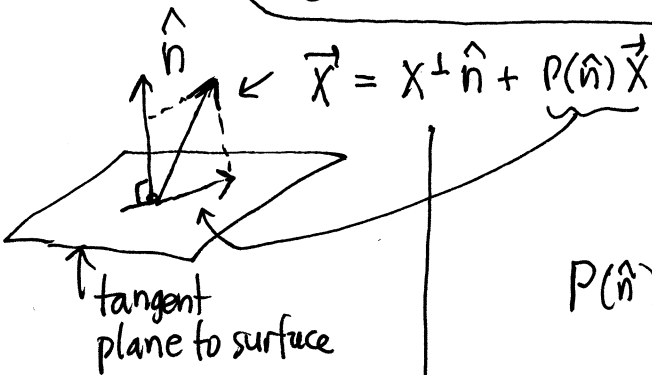 n̂
X⃗ = X⊥ n̂ + P(n̂) X⃗
P(n̂)
tangent
plane to surface